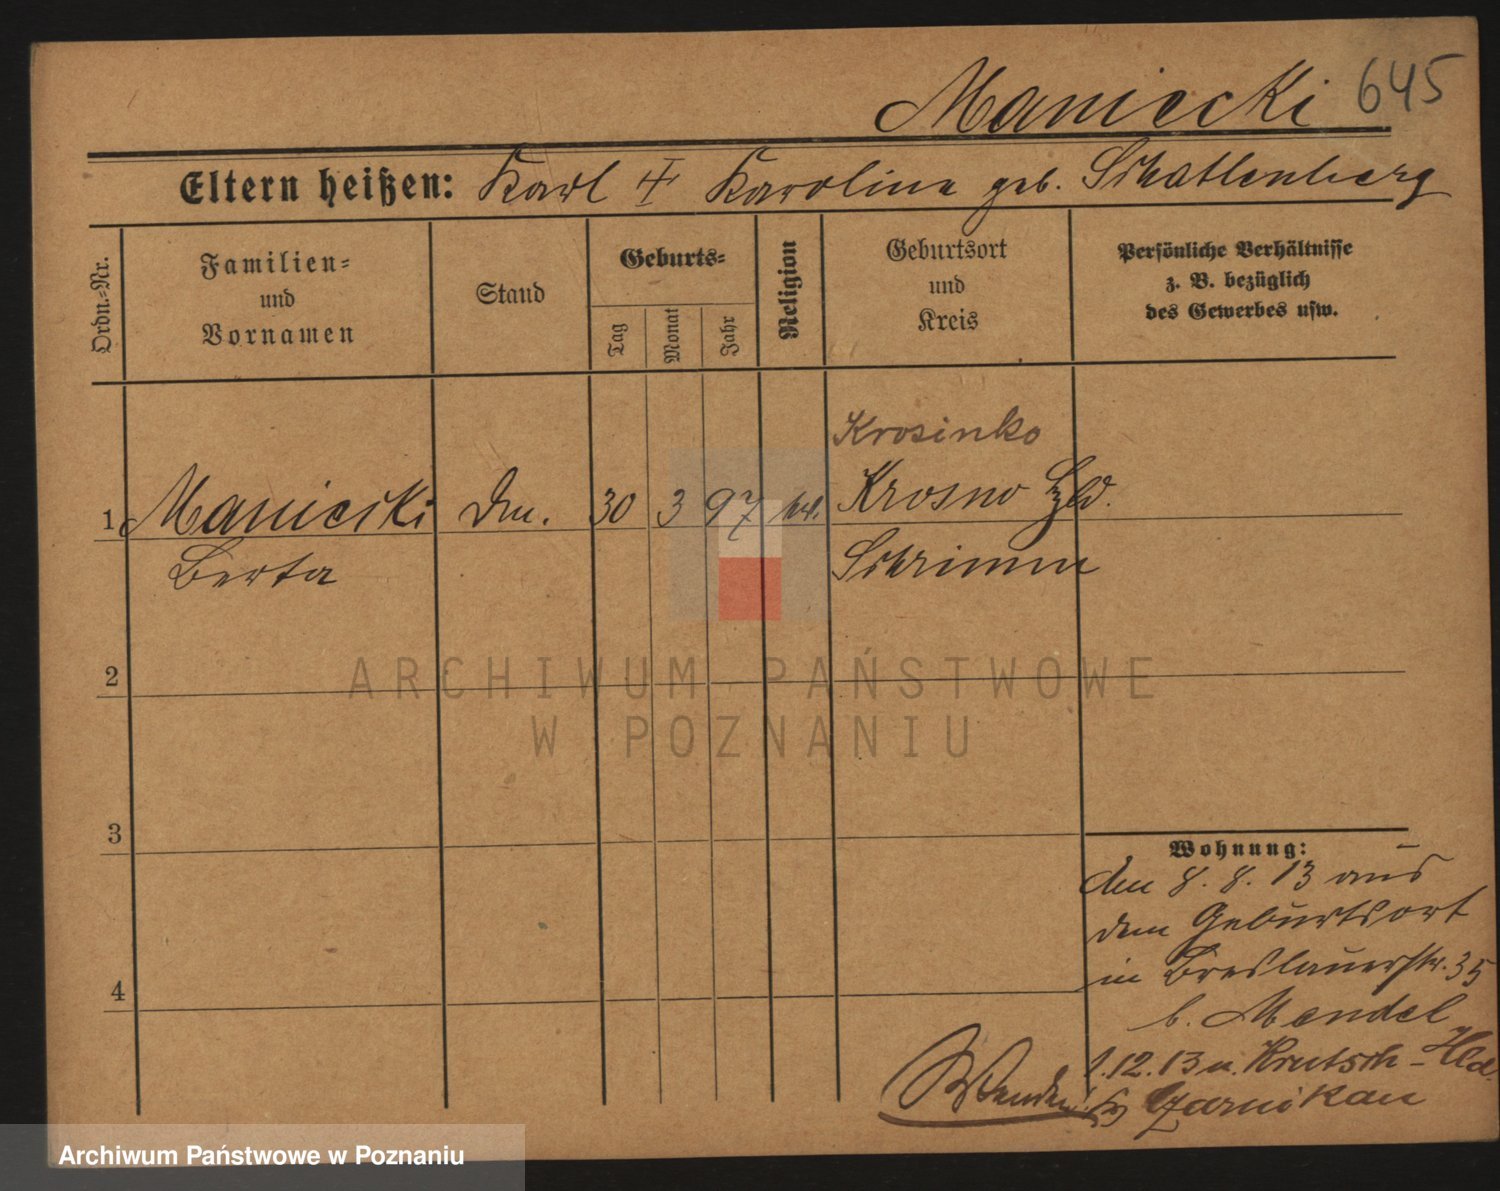 Maniecki 645
Eltern heißen: Karl ‡ Karoline geb. Schattenberg
Ordn.-Nr.
Familien-
und
Vornamen
Stand
Geburts-
Tag
Monat
Jahr
Religion
Geburtsort
und
Kreis
Persönliche Verhältnisse
z. B. bezüglich
des Gewerbes usw.
Krosinko
1 Maniecki 30 3 97 Krosno Hld.
Berta Schrimm
2
ARCHIWUM PAŃSTWOWE
W POZNANIU
3
Wohnung:
den 8. 8. 13 aus
dem Geburtsort
in Breslauerstr. 35
b. Mendel
1.12.13 n. Krutsch-Hld.
Wenden! Czarnikau
4
Archiwum Państwowe w Poznaniu